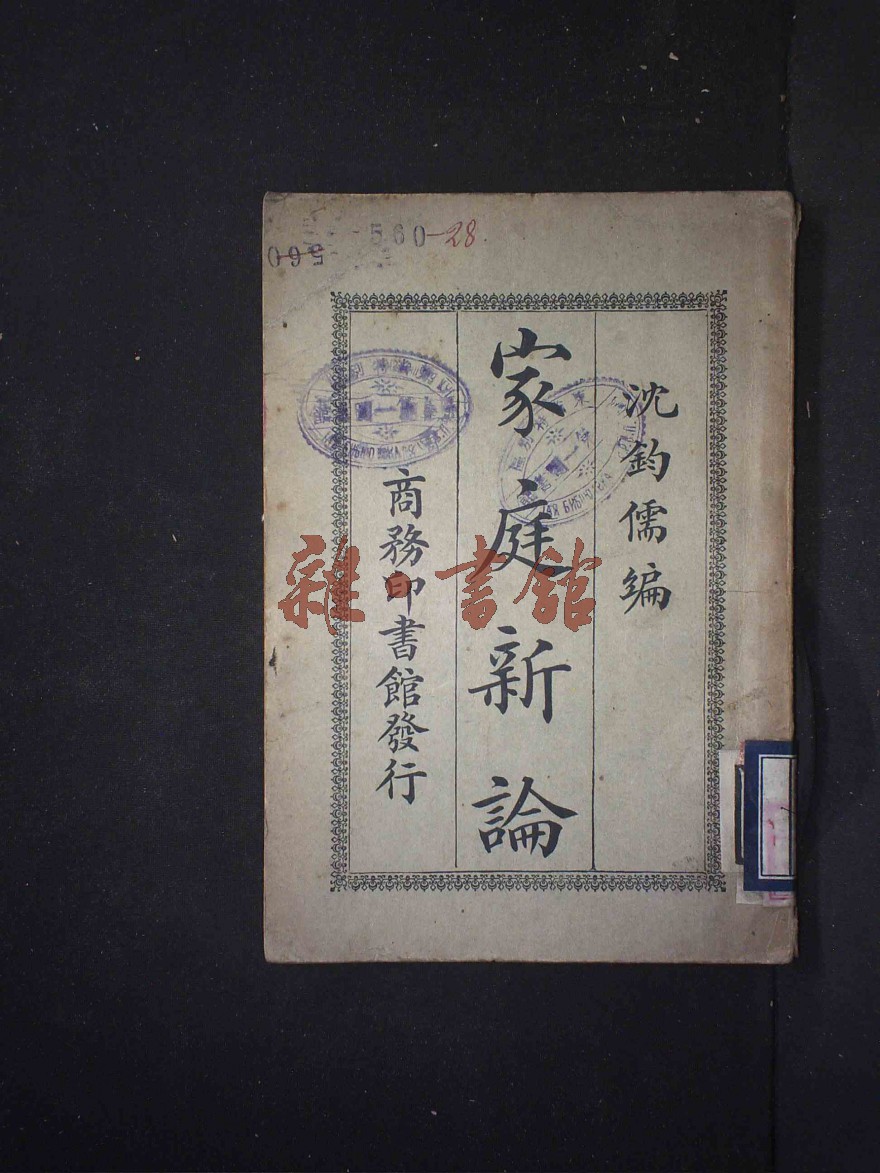 560-28
560
沈鈞儒編
家庭新論
商務印書館發行
雜書館